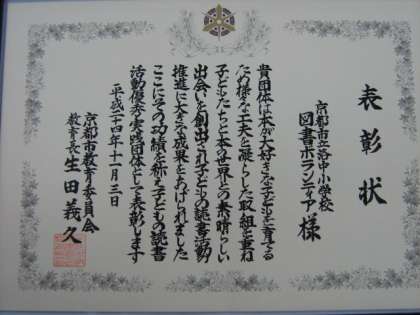 表彰状
京都市立洛中小学校
図書ボランティア様
貴団体は本が大好きな子どもを育てる
ため様々な工夫を凝らした取組を重ね
子どもたちと本の世界との素晴らしい
出会いを創出され子どもの読書活動
推進に大きな成果をあげられました
ここにその功績を称え子どもの読書
活動優秀実践団体として表彰します
平成二十四年十一月三日
京都市教育委員会
教育長 生田義久